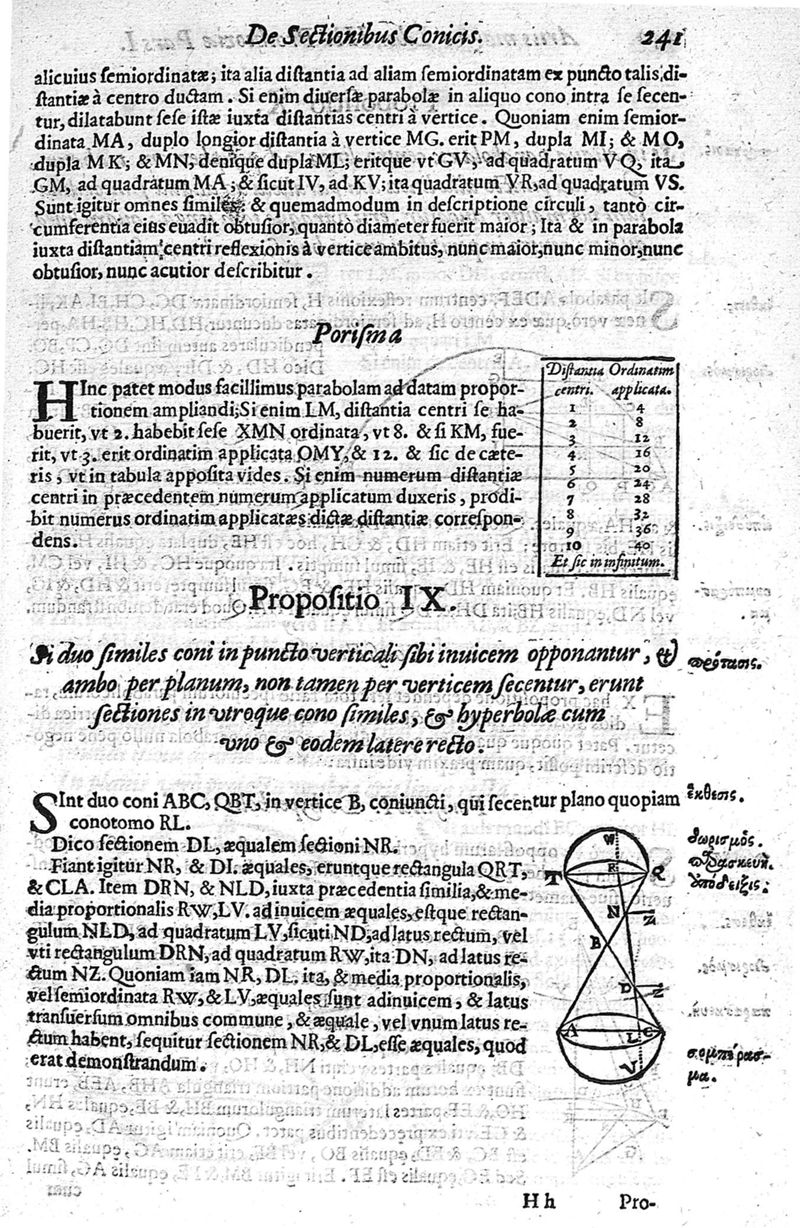 De Sectionibus Conicis. 241
alicuius semiordinatæ; ita alia distantia ad aliam semiordinatam ex puncto talis di-
stantiæ à centro ductam. Si enim diuersæ parabolæ in aliquo cono intra se secen-
tur, dilatabunt sese istæ iuxta distantias centri à vertice. Quoniam enim semior-
dinata MA, duplo longior distantia à vertice MG. erit PM, dupla MI; & MO,
dupla MK; & MN, denique dupla ML; eritque vt GV, ad quadratum VQ, ita
GM, ad quadratum MA; & sicut IV, ad KV; ita quadratum VR, ad quadratum VS.
Sunt igitur omnes similes & quemadmodum in descriptione circuli, tantò cir-
cumferentia eius euadit obtusior, quantò diameter fuerit maior; Ita & in parabola
iuxta distantiam centri reflexionis à vertice ambitus, nunc maior, nunc minor, nunc
obtusior, nunc acutior describitur.
Porisma
HInc patet modus facillimus parabolam ad datam propor-
tionem ampliandi; Si enim LM, distantia centri se ha-
buerit, vt 2. habebit sese XMN ordinata, vt 8. & si KM, fue-
rit, vt 3. erit ordinatim applicata OMY, & 12. & sic de cæte-
ris, vt in tabula apposita vides. Si enim numerum distantiæ
centri in præcedentem numerum applicatum duxeris, prodi-
bit numerus ordinatim applicatæ dictæ distantiæ correspon-
dens.
Distantia Ordinatim
centri. applicata.
1 4
2 8
3 12
4 16
5 20
6 24
7 28
8 32
9 36
10 40
Et sic in infinitum.
Propositio IX.
Si duo similes coni in puncto verticali sibi inuicem opponantur, &
ambo per planum, non tamen per verticem secentur, erunt
sectiones in vtroque cono similes, & hyperbolæ cum
vno & eodem latere recto.
πρότασις.
SInt duo coni ABC, QBT, in vertice B, coniuncti, qui secentur plano quopiam
conotomo RL.
ἔκθεσις.
Dico sectionem DL, æqualem sectioni NR.
διορισμός.
Fiant igitur NR, & DL æquales, eruntque rectangula QRT,
& CLA. Item DRN, & NLD, iuxta præcedentia similia, & me-
dia proportionalis RW, LV. ad inuicem æquales, estque rectan-
gulum NLD, ad quadratum LV, sicuti ND, ad latus rectum, vel
vti rectangulum DRN, ad quadratum RW, ita DN, ad latus re-
ctum NZ. Quoniam iam NR, DL, ita, & media proportionalis,
vel semiordinata RW, & LV, æquales sunt adinuicem, & latus
transuersum omnibus commune, & æquale, vel vnum latus re-
ctum habent, sequitur sectionem NR, & DL, esse æquales, quod
erat demonstrandum.
ἀπόδειξις.
W
T R Q
N Z
B
D Z
A L C
V
H h Pro-